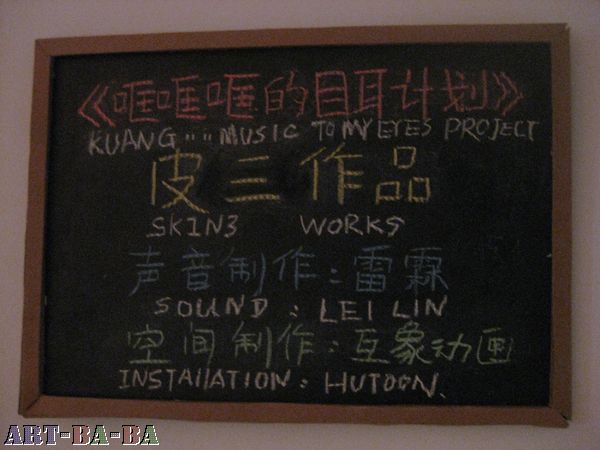 《哐哐哐的目耳计划》
KUANG """ MUSIC TO MY EYES PROJECT
皮三作品
SKIN3 WORKS
声音制作：雷霖
SOUND : LEI LIN
空间制作：互象动画
INSTAllATION : HUTOON.
ART-BA-BA